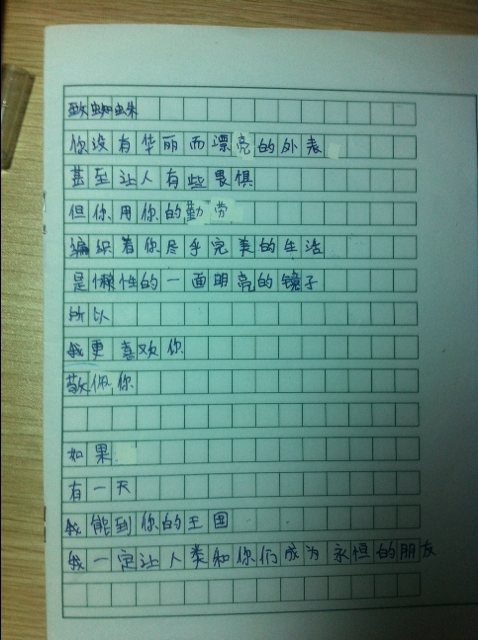 致蜘蛛
你没有华丽而漂亮的外表
甚至让人有些畏惧
但你用你的勤劳
编织着你尽乎完美的生活
是懒性的一面明亮的镜子
所以
我更喜欢你
敬佩你
如果
有一天
我能到你的王国
我一定让人类和你们成为永恒的朋友